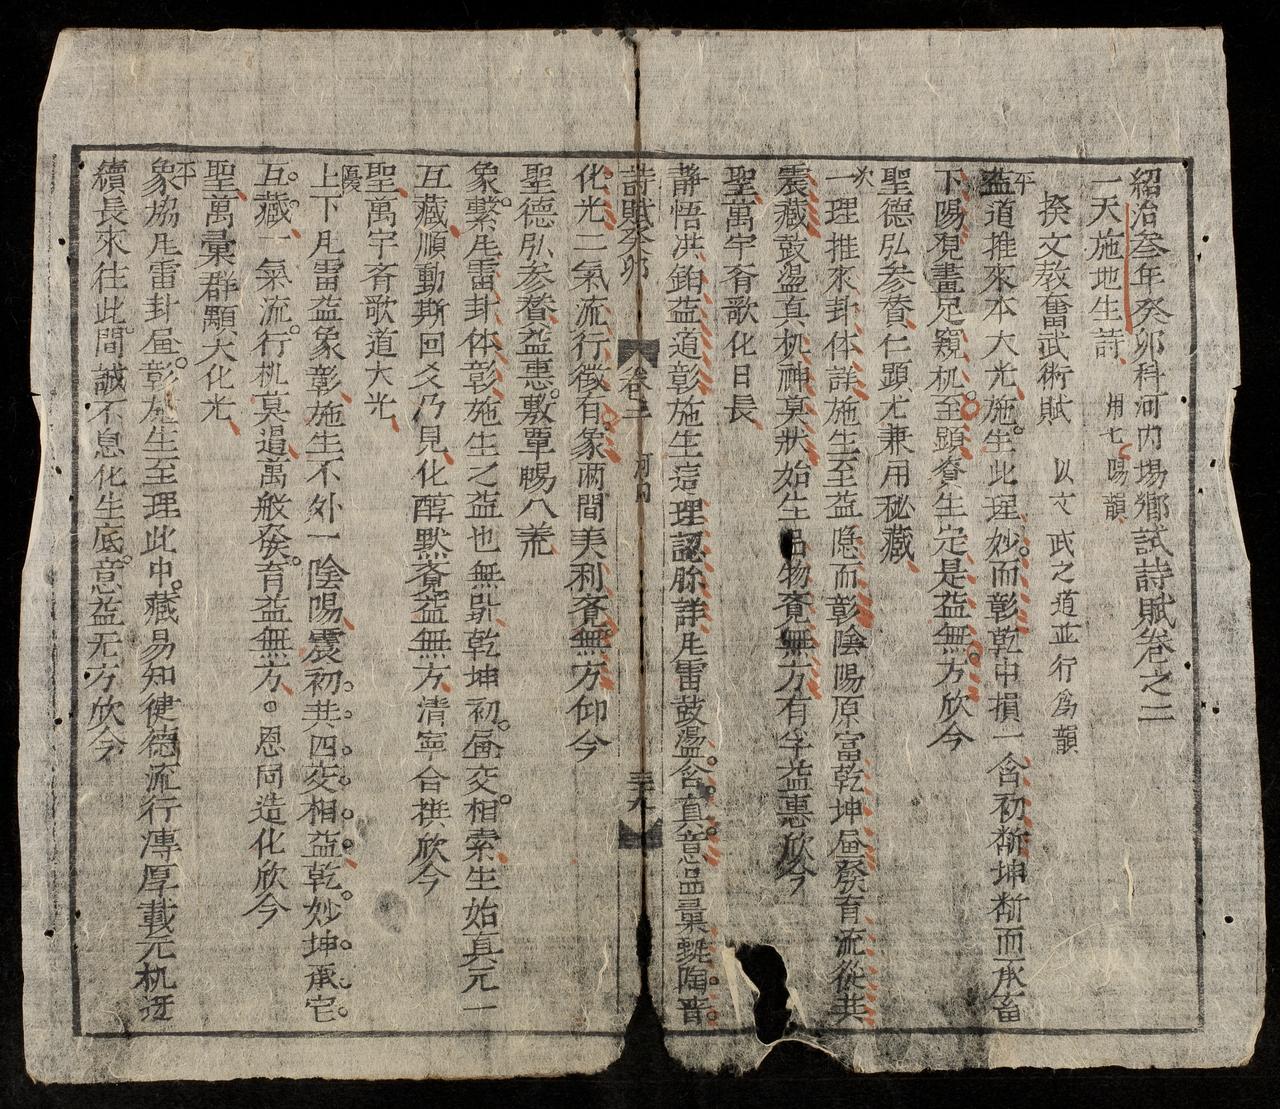 紹治叁年癸卯科河内場鄉試詩賦卷之二
一天施地生詩 用七陽韻
揆文教奮武術賦 以文武之道並行爲韻
平
益道推來本大光施生此理妙而彰乾中損一含初斷坤而承畜
下陽現畫足窺机至顯資生定是益無方欣今
聖德弘參贊仁顕尤兼用秘藏
次
一理推來卦体詳施生至益隐而彰陰陽原富乾坤发育流從共
震藏鼓盪真机神莫狀始生品物資無方有孚益惠欣今
聖萬宇育歌化日長
靜悟洪鈞益道彰施生這理認脉詳凡雷鼓盪含真意品彙甄陶
化光二氣流行徵有象兩間美利資無方仰今
詩賦癸卯 卷二 河内 三十八
聖德弘參贊益惠敷覃賜八荒
象繫凡雷卦体彰施生之益也無乾坤初交相索生始真元一
互藏順動斯回爻乃見化醇默資益無方清寧合撰欣今
聖萬宇育歌道大光
優
上下凡雷益象彰施生不外一陰陽震初共四交相益乾妙坤承
互藏一氣流行机莫遏萬般發育益無方恩同造化欣今
聖萬彙群顯大化光
平
象協凡雷卦彰施生至理此中藏易知健德流行溥厚載元机
續長來往此間誠不息化生底意益无方欣今